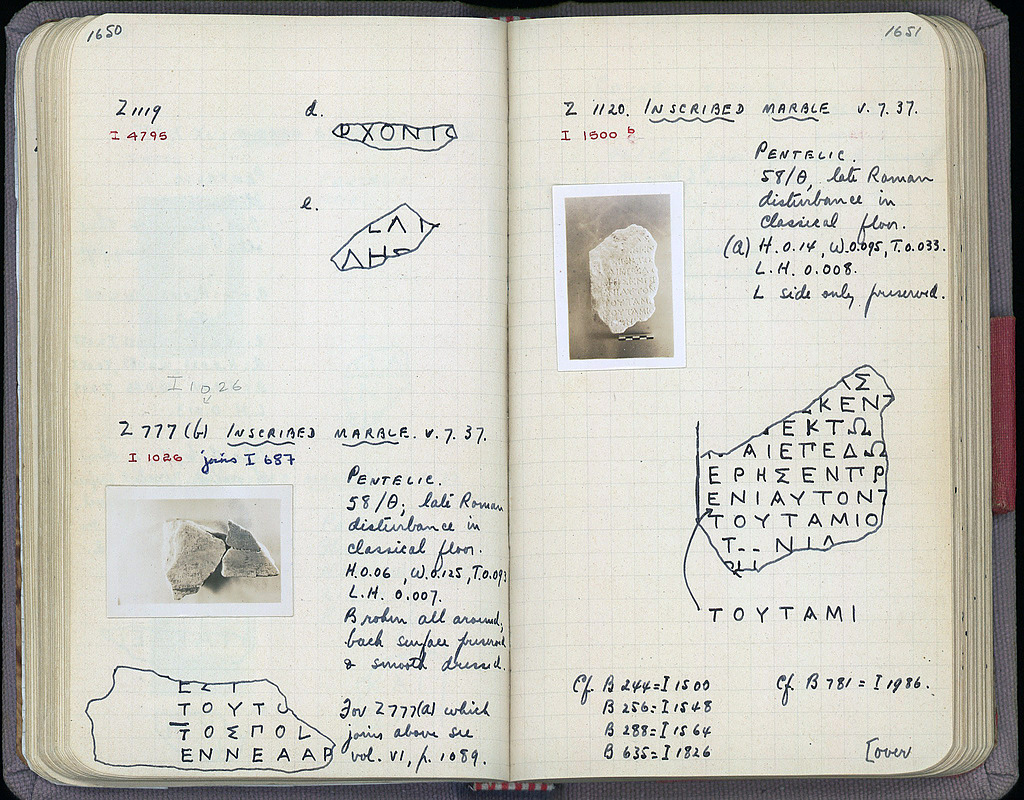 1650
Z 1119
I 4795
d.
ΡΧΟΝΤΣ
e.
ΕΛΙ
ΔΗΣ
I 1026
Z 777 (b) INSCRIBED MARBLE. V.7.37.
I 1026 joins I 687
PENTELIC.
58/Θ; late Roman
disturbance in
classical floor.
H.0.06, W.0.125, T.0.093
L.H. 0.007.
Broken all around;
back surface preserved
& smooth dressed.
ΤΟΥΤΟ
ΤΟΣΠΟΛ
ΕΝΝΕΑΑΡ
For Z777(a) which
joins above see
vol. VI, p. 1089.
1651
Z 1120. INSCRIBED MARBLE V.7.37.
I 1500 b
PENTELIC.
58/Θ, late Roman
disturbance in
classical floor.
(a) H.0.14, W.0.095, T.0.033.
L.H. 0.008.
L side only preserved.
ΛΣ
ΚΕΝΤ
ΕΚΤΩ
ΑΙΕΠΕΔΩ
ΕΡΗΣΕΝΠΡ
ΕΝΙΑΥΤΟΝΤ
ΤΟΥΤΑΜΙΟ
Τ-- ΝΙΛ
ΤΟΥΤΑΜΙ
Cf. B 244 = I 1500
B 256 = I 1548
B 288 = I 1564
B 635 = I 1826
Cf. B 781 = I 1986.
[over